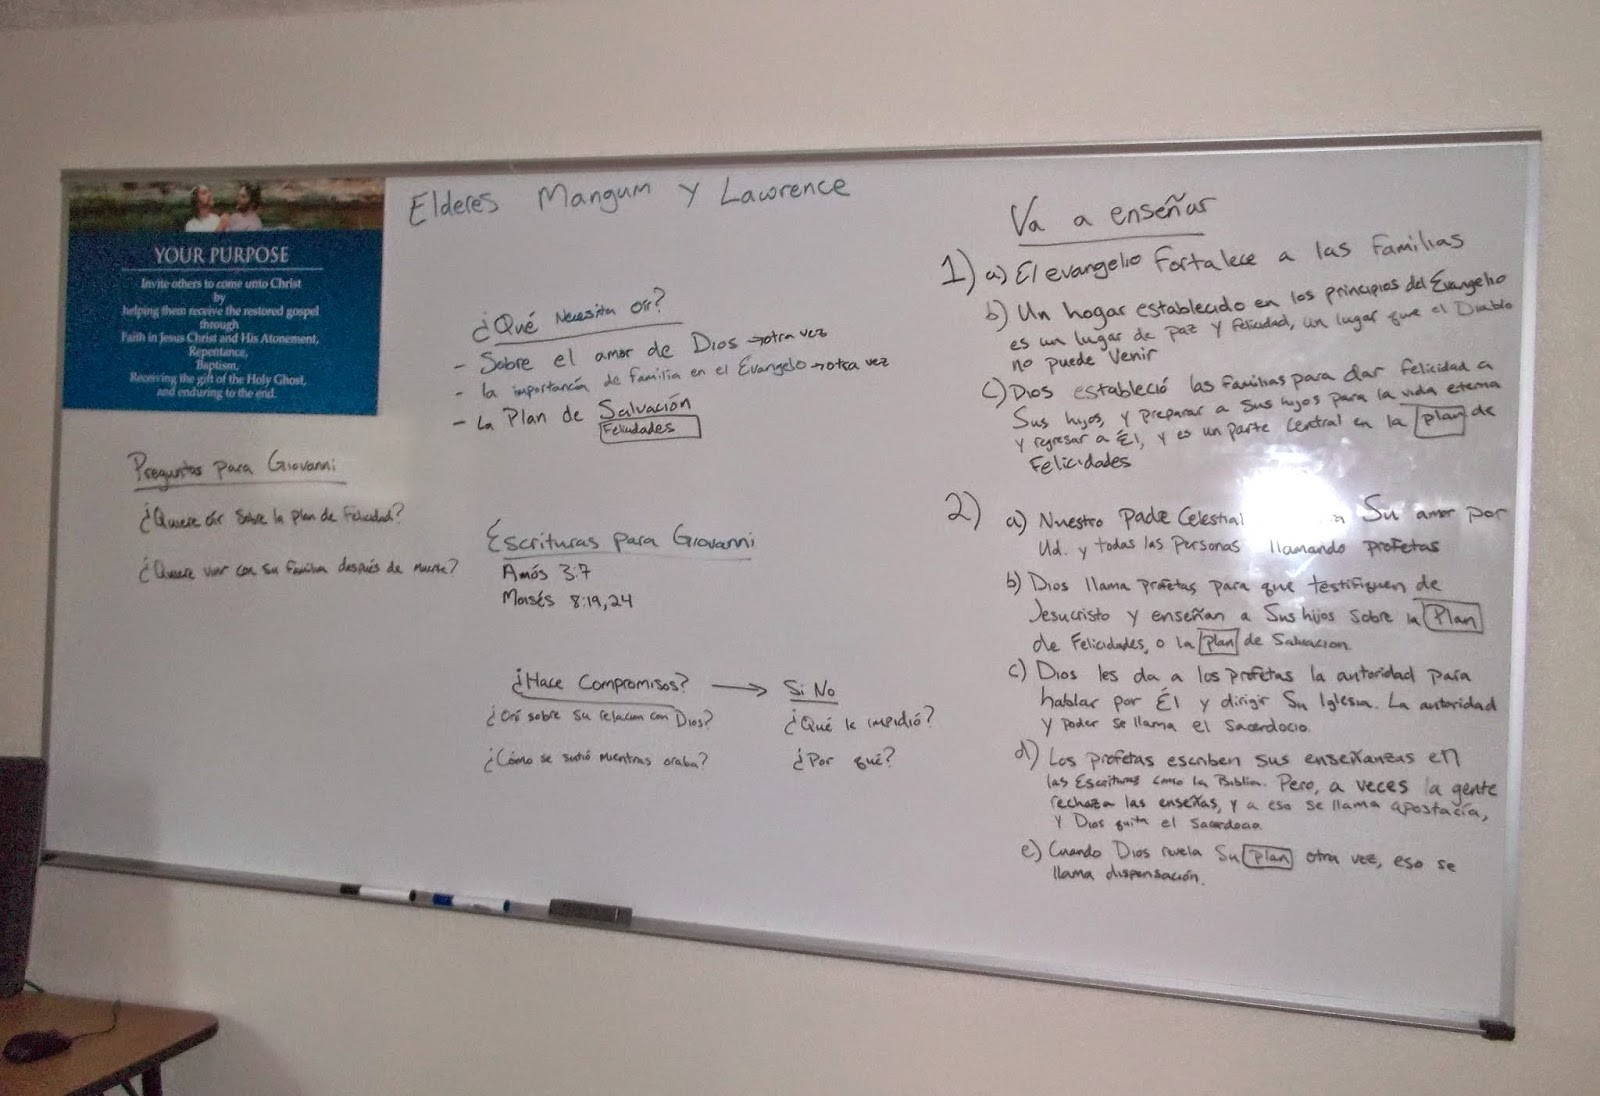 YOUR PURPOSE
Invite others to come unto Christ
by
helping them receive the restored gospel
through
Faith in Jesus Christ and His Atonement,
Repentance,
Baptism,
Receiving the gift of the Holy Ghost,
and enduring to the end.
Preguntas para Giovanni
¿Quiere oír sobre la plan de Felicidad?
¿Quiere vivir con su familia después de muerte?
Elderes Mangum y Lawrence
¿Qué Necesita oír?
- Sobre el amor de Dios → otra vez
- la importancia de familia en el Evangelo → otra vez
- La Plan de Salvación
Felicidades
Escrituras para Giovanni
Amós 3:7
Moisés 8:19,24
¿Hace Compromisos? → Si No
¿Oró sobre su relacion con Dios? ¿Qué le impidió?
¿Cómo se sintió mientras oraba? ¿Por qué?
Va a enseñar
1) a) El evangelio fortalece a las familias
b) Un hogar establecido en los principios del Evangelio
es un lugar de paz y felicidad, un lugar que el Diablo
no puede venir
c) Dios estableció las familias para dar felicidad a
Sus hijos, y preparar a Sus hijos para la vida eterna
y regresar a Él, y es un parte central en la plan de
Felicidades
2) a) Nuestro Padre Celestial Su amor por
Ud. y todas las personas llamando profetas
b) Dios llama profetas para que testifiquen de
Jesucristo y enseñan a Sus hijos sobre la Plan
de Felicidades, o la plan de Salvacion.
c) Dios les da a los profetas la autoridad para
hablar por Él y dirigir Su Iglesia. La autoridad
y poder se llama el sacerdocio.
d) Los profetas escriben sus enseñanzas en
las Escrituras como la Biblia. Pero, a veces la gente
rechaza las enseñas, y a eso se llama apostacía,
y Dios quita el sacerdocio.
e) Cuando Dios revela Su plan otra vez, eso se
llama dispensación.